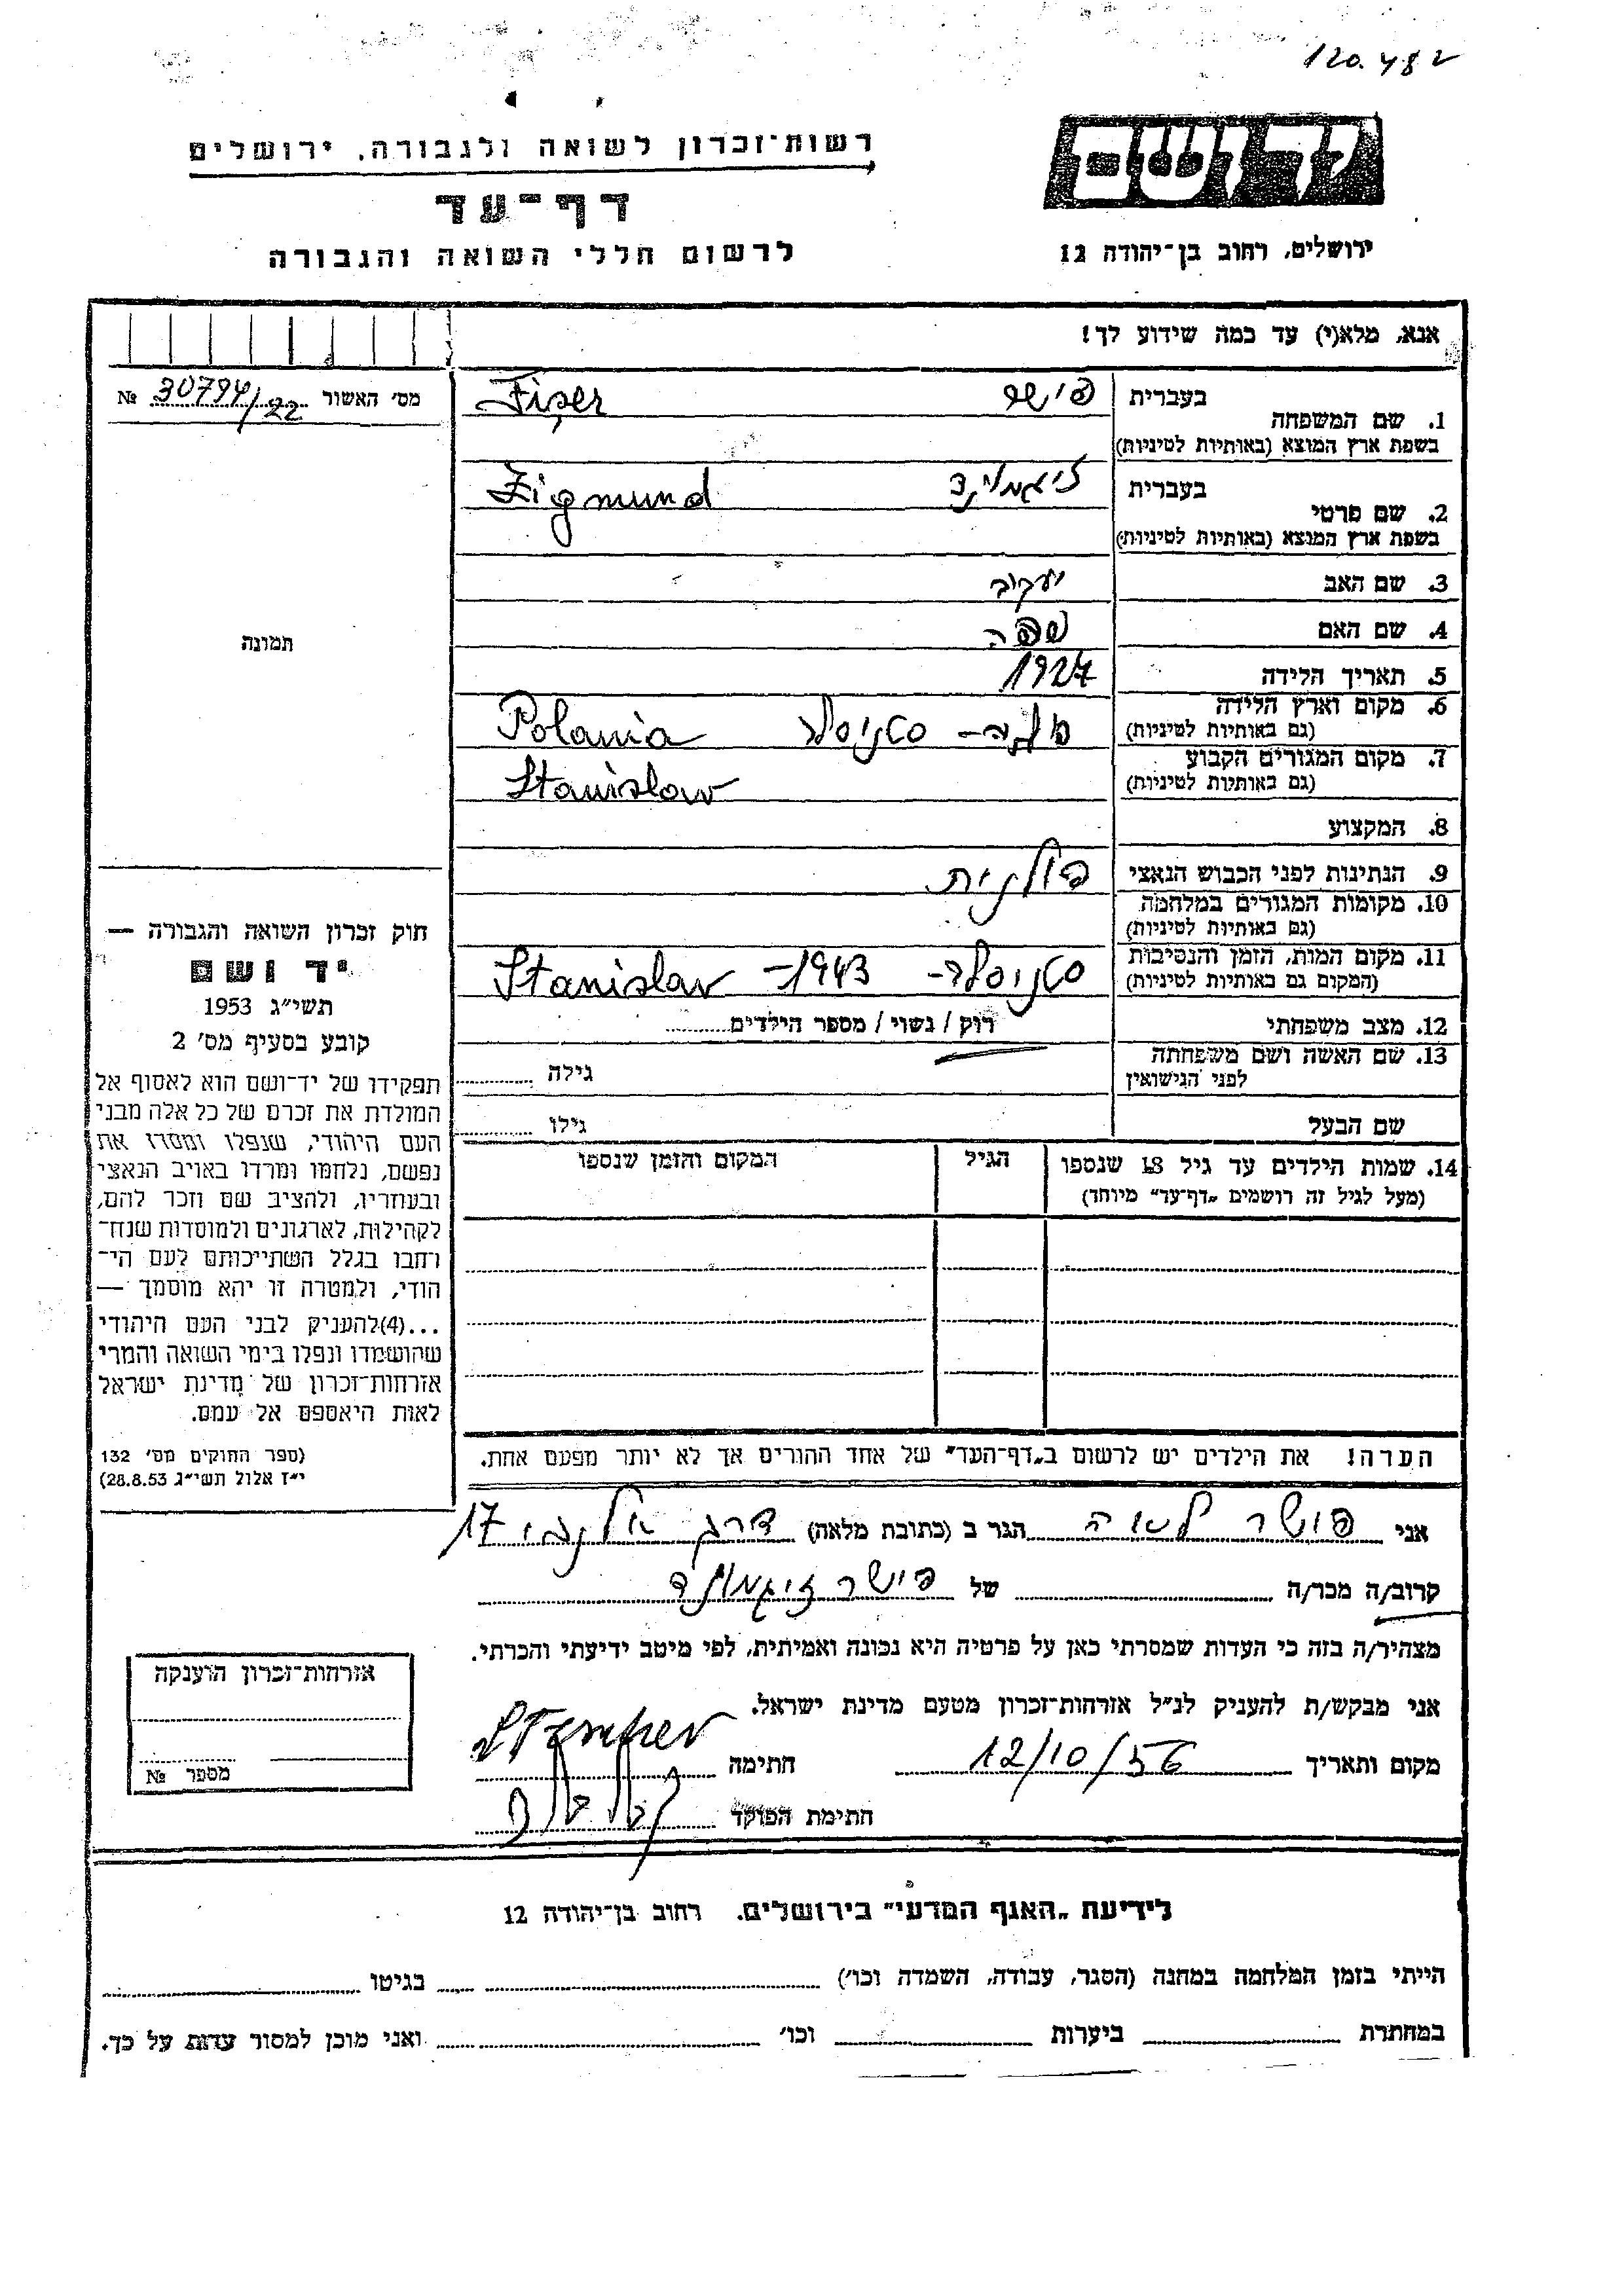 120.482
יד ושם
רשות־זכרון לשואה ולגבורה, ירושלים
דף־עד
לרשום חללי השואה והגבורה
ירושלים, רחוב בן־יהודה 12
אנא, מלא(י) עד כמה שידוע לך!
מס׳ האשור 30794/22 №
תמונה
חוק זכרון השואה והגבורה —
יד ושם
תשי״ג 1953
קובע בסעיף מס׳ 2
תפקידו של יד־ושם הוא לאסוף אל
המולדת את זכרם של כל אלה מבני
העם היהודי, שנפלו ומסרו את
נפשם, נלחמו ומרדו באויב הנאצי
ובעוזריו, ולהציב שם וזכר להם,
לקהילות, לארגונים ולמוסדות שנח־
רחבו בגלל השתייכותם לעם הי־
הודי, ולמטרה זו יהא מוסמך —
...(4)להעניק לבני העם היהודי
שהושמדו ונפלו בימי השואה והמרי
אזרחות־זכרון של מדינת ישראל
לאות היאספם אל עמם.
(ספר החוקים מס׳ 132
י״ז אלול תשי״ג 28.8.53)
בעברית פישר Fiszer
1. שם המשפחה
בשפת ארץ המוצא (באותיות לטיניות)
בעברית זיגמונד Zigmund
2. שם פרטי
בשפת ארץ המוצא (באותיות לטיניות)
3. שם האב יעקב
4. שם האם
5. תאריך הלידה 1927
6. מקום וארץ הלידה
(גם באותיות לטיניות) פולניה – סטניסלב Polania
7. מקום המגורים הקבוע
(גם באותיות לטיניות) Stanislaw
8. המקצוע
9. הנתינות לפני הכבוש הנאצי פולנית
10. מקומות המגורים במלחמה
(גם באותיות לטיניות)
11. מקום המות, הזמן והנסיבות
(המקום גם באותיות לטיניות) סטניסלב – 1943 – Stanislaw
12. מצב משפחתי רוק / נשוי / מספר הילדים
13. שם האשה ושם משפחתה
לפני הנישואין גילה
שם הבעל גילו
14. שמות הילדים עד גיל 18 שנספו הגיל המקום והזמן שנספו
(מעל לגיל זה רושמים „דף־עד” מיוחד)
הערה! את הילדים יש לרשום ב„דף־העד” של אחד ההורים אך לא יותר מפעם אחת.
אני פישר לאה הגר ב (כתובת מלאה) דרך אלנבי 17
קרוב/ה מכר/ה של פישר זיגמונד
מצהיר/ה בזה כי העדות שמסרתי כאן על פרטיה היא נכונה ואמיתית, לפי מיטב ידיעתי והכרתי.
אני מבקש/ת להעניק לנ״ל אזרחות־זכרון מטעם מדינת ישראל.
מקום ותאריך 12/10/56 חתימה
חתימת הפוקד
אזרחות־זכרון הוענקה
מספר №
לידיעת „האגף המדעי” בירושלים. רחוב בן־יהודה 12
הייתי בזמן המלחמה במחנה (הסגר, עבודה, השמדה וכו׳) בגיטו
במחתרת ביערות וכו׳ ואני מוכן למסור עדות על כך.